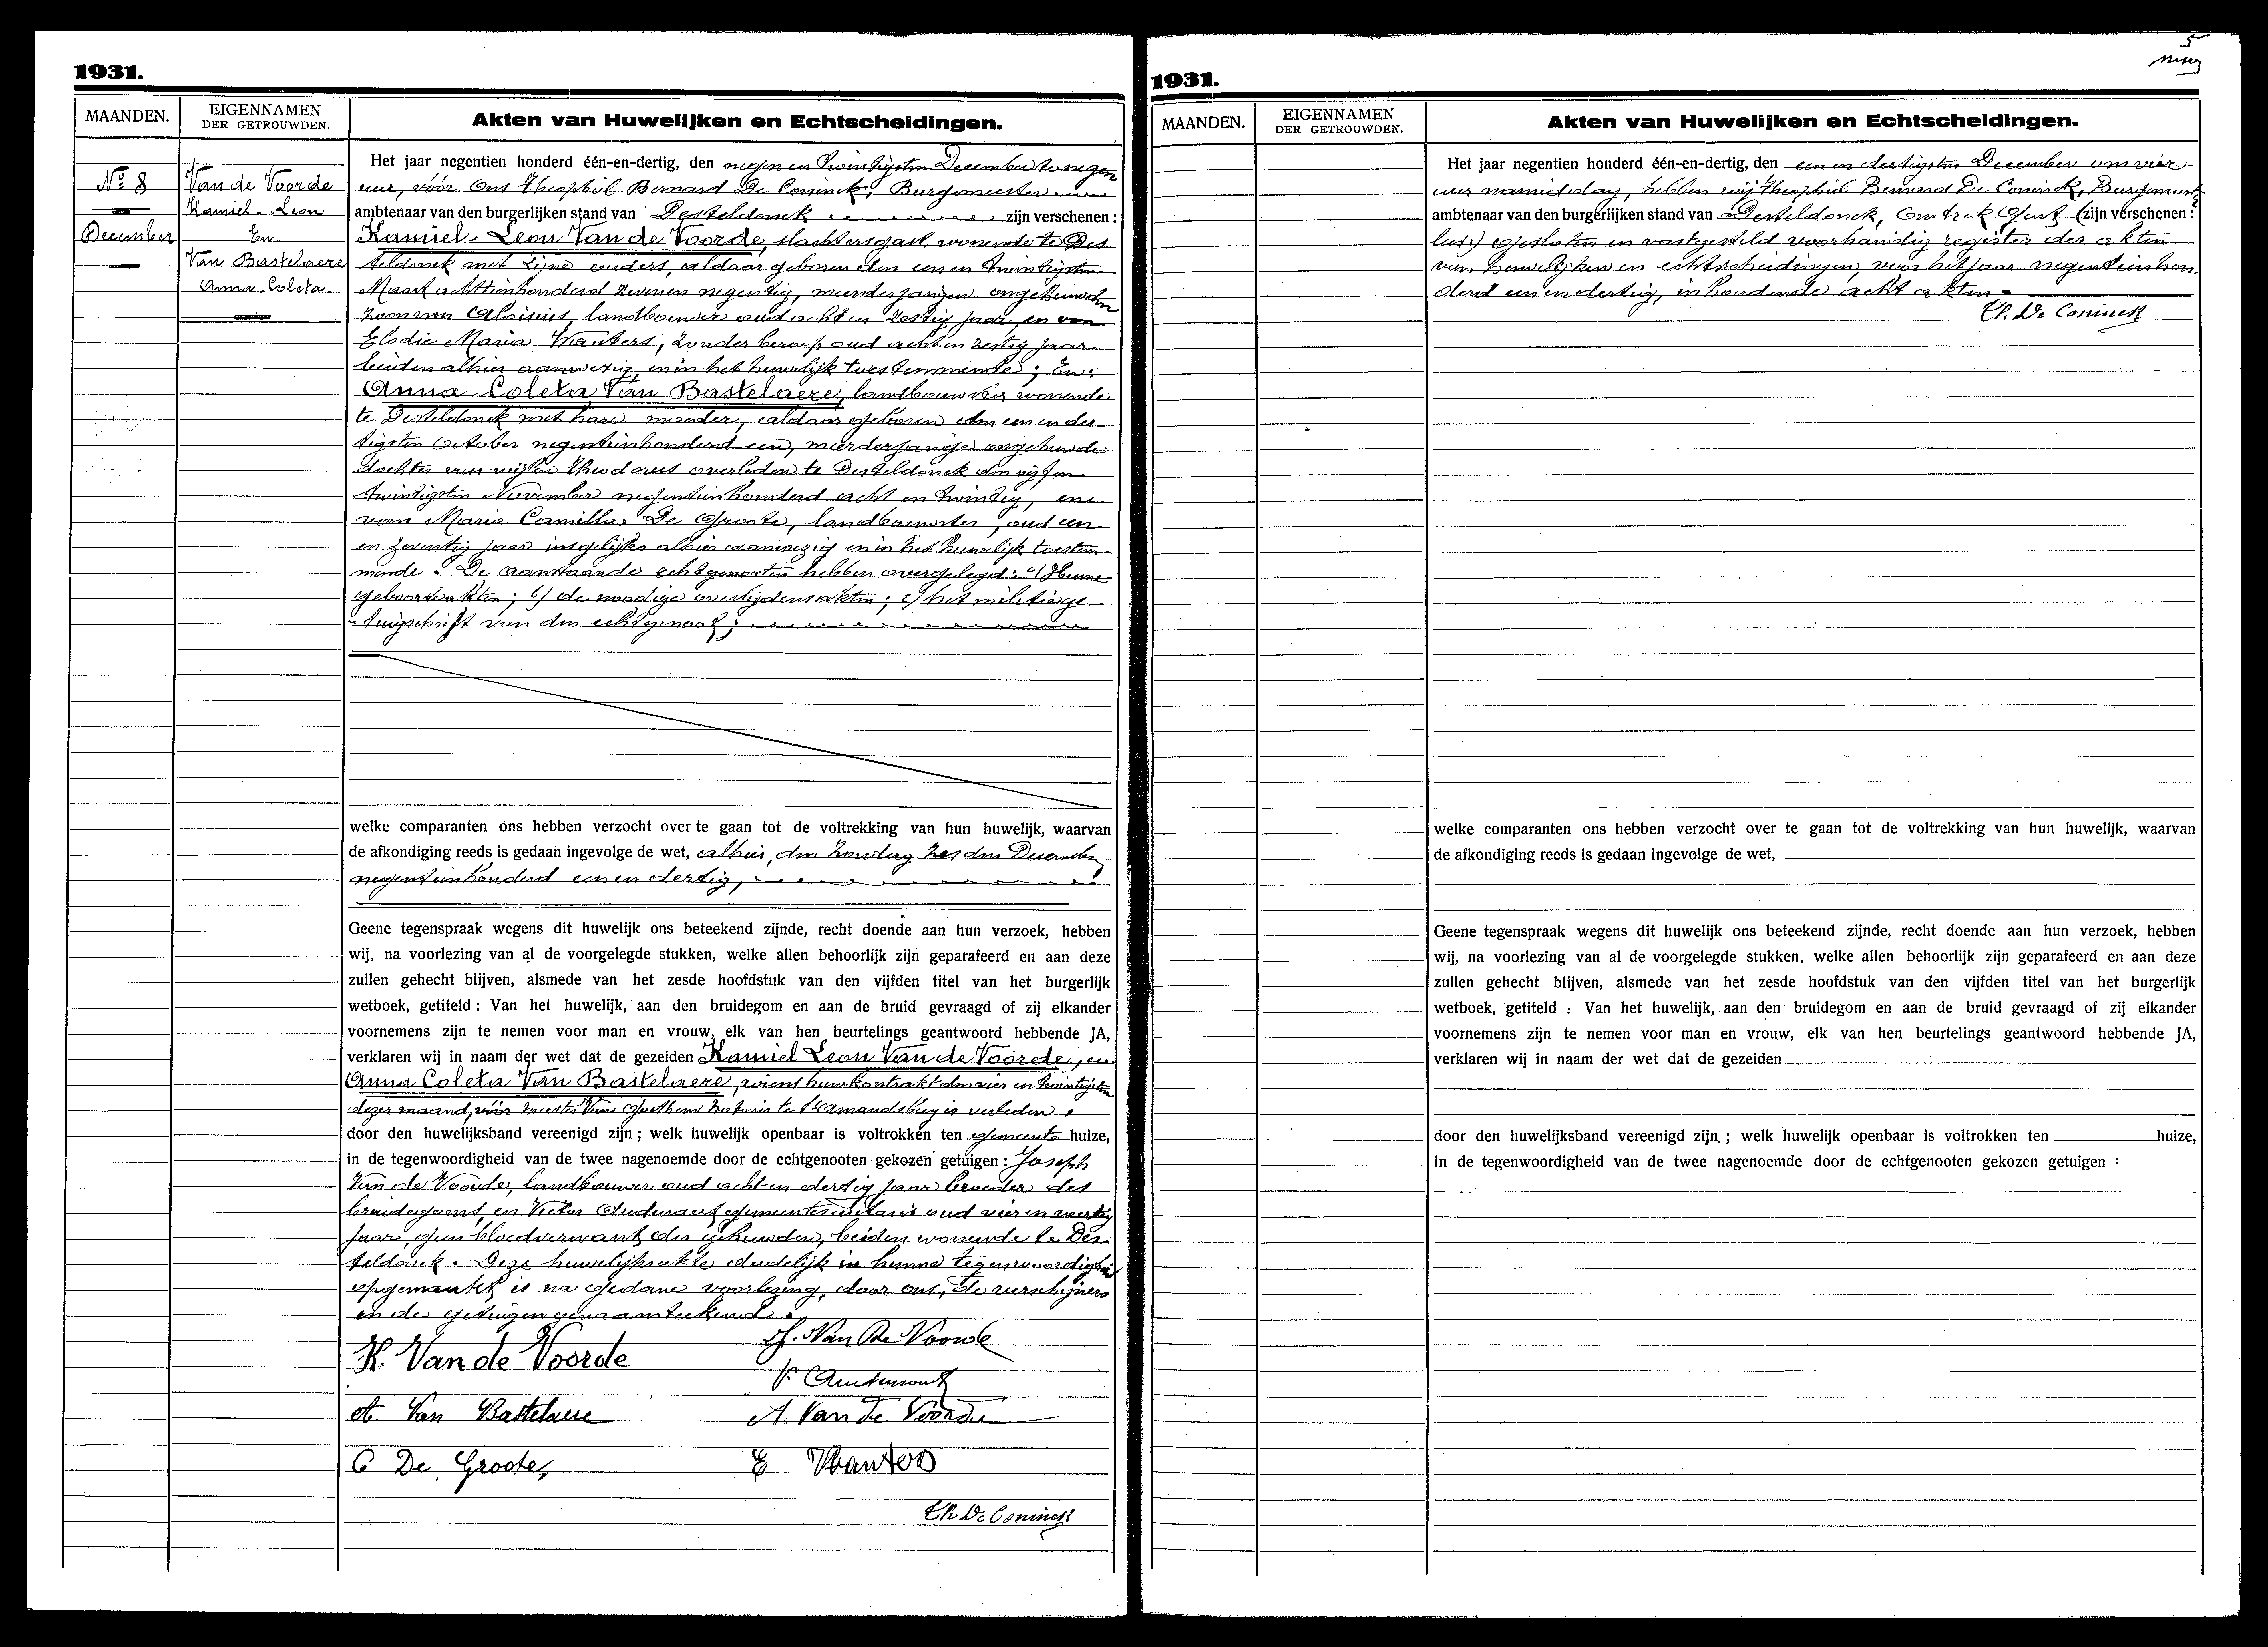 1931.
MAANDEN.
EIGENNAMEN
DER GETROUWDEN.
Akten van Huwelijken en Echtscheidingen.
No. 8
December
Van de Voorde
Kamiel-Leon
En
Van Bastelaere
Anna-Coleta
Het jaar negentien honderd één-en-dertig, den negen en twintigsten December te negen
ure, vóór Ons Theophiel Bernard De Coninck, Burgemeester
ambtenaar van den burgerlijken stand van Desteldonck zijn verschenen :
Kamiel-Leon Van de Voorde, slachtersgast wonende te Des
teldonck met zijne ouders, aldaar geboren den een en twintigsten
Maart achttienhonderd zeven en negentig, meerderjarigen ongehuwden
zoon van Aloisius, landbouwer oud acht en zestig jaar, en van
Elodie Maria Wauters, zonder beroep oud acht en zestig jaar
beiden alhier aanwezig en in het huwelijk toestemmende ; En :
Anna-Coleta Van Bastelaere, landbouwster wonende
te Desteldonck met hare moeder, aldaar geboren den een en der-
tigsten October negentienhonderd een, meerderjarige ongehuwde
dochter van wijlen Theodorus overleden te Desteldonck den vijf en
twintigsten November negentienhonderd acht en twintig, en
van Maria Camilla De Groote, landbouwster, oud een
en zeventig jaar insgelijks alhier aanwezig en in het huwelijk toestem-
mende. De aanstaande echtgenooten hebben overgelegd : a) Hunne
geboorteakten ; b) de noodige overlijdensakten ; c) het militiege-
tuigschrift van den echtgenoot ;
welke comparanten ons hebben verzocht over te gaan tot de voltrekking van hun huwelijk, waarvan
de afkondiging reeds is gedaan ingevolge de wet, alhier, den zondag zesden December
negentienhonderd een en dertig,
Geene tegenspraak wegens dit huwelijk ons beteekend zijnde, recht doende aan hun verzoek, hebben
wij, na voorlezing van al de voorgelegde stukken, welke allen behoorlijk zijn geparafeerd en aan deze
zullen gehecht blijven, alsmede van het zesde hoofdstuk van den vijfden titel van het burgerlijk
wetboek, getiteld : Van het huwelijk, aan den bruidegom en aan de bruid gevraagd of zij elkander
voornemens zijn te nemen voor man en vrouw, elk van hen beurtelings geantwoord hebbende JA,
verklaren wij in naam der wet dat de gezeiden Kamiel Leon Van de Voorde, en
Anna Coleta Van Bastelaere, wiens huwkontrakt den vier en twintigsten
dezer maand, vóór meester Van notaris te St Amandsberg is verleden,
door den huwelijksband vereenigd zijn ; welk huwelijk openbaar is voltrokken ten gemeente huize,
in de tegenwoordigheid van de twee nagenoemde door de echtgenooten gekozen getuigen : Joseph
Van de Voorde, landbouwer oud acht en dertig jaar broeder des
bruidegoms, en Victor gemeentesecretaris oud vier en veertig
jaar, geen bloedverwant der gehuwden, beiden wonende te Des-
teldonck. Deze huwelijksakte dadelijk in hunne tegenwoordigheid
opgemaakt is na gedane voorlezing, door ons, de verschijners
en de getuigen genaamteekend.
K. Van de Voorde
J. Van De Voorde
A. Van Bastelaere
A. Van de Voorde
C De Groote,
E Wauters
Th. De Coninck
5
1931.
MAANDEN.
EIGENNAMEN
DER GETROUWDEN.
Akten van Huwelijken en Echtscheidingen.
Het jaar negentien honderd één-en-dertig, den een en dertigsten December om vier
uur namiddag, hebben wij Theophiel Bernard De Coninck, Burgemeester
ambtenaar van den burgerlijken stand van Desteldonck, (zijn verschenen :
lus:) gesloten en vastgesteld voorhandig register der akten
van huwelijken en echtscheidingen, voor het jaar negentienhon-
derd een en dertig, inhoudende acht akten.
Th. De Coninck
welke comparanten ons hebben verzocht over te gaan tot de voltrekking van hun huwelijk, waarvan
de afkondiging reeds is gedaan ingevolge de wet,
Geene tegenspraak wegens dit huwelijk ons beteekend zijnde, recht doende aan hun verzoek, hebben
wij, na voorlezing van al de voorgelegde stukken, welke allen behoorlijk zijn geparafeerd en aan deze
zullen gehecht blijven, alsmede van het zesde hoofdstuk van den vijfden titel van het burgerlijk
wetboek, getiteld : Van het huwelijk, aan den bruidegom en aan de bruid gevraagd of zij elkander
voornemens zijn te nemen voor man en vrouw, elk van hen beurtelings geantwoord hebbende JA,
verklaren wij in naam der wet dat de gezeiden
door den huwelijksband vereenigd zijn ; welk huwelijk openbaar is voltrokken ten huize,
in de tegenwoordigheid van de twee nagenoemde door de echtgenooten gekozen getuigen :